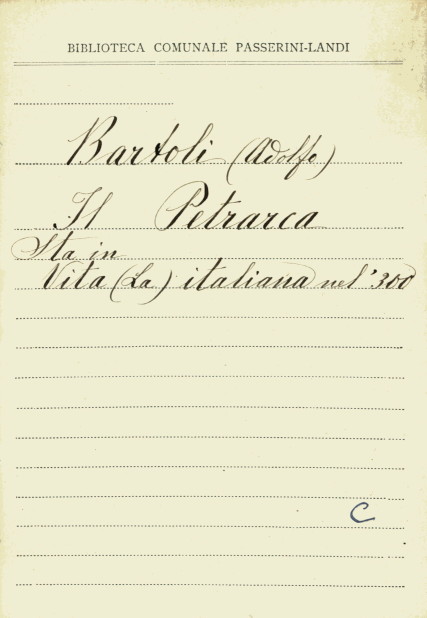 BIBLIOTECA COMUNALE PASSERINI-LANDI
Bartoli (Adolfo)
Il Petrarca
Sta in
Vita (La) italiana nel '300
C